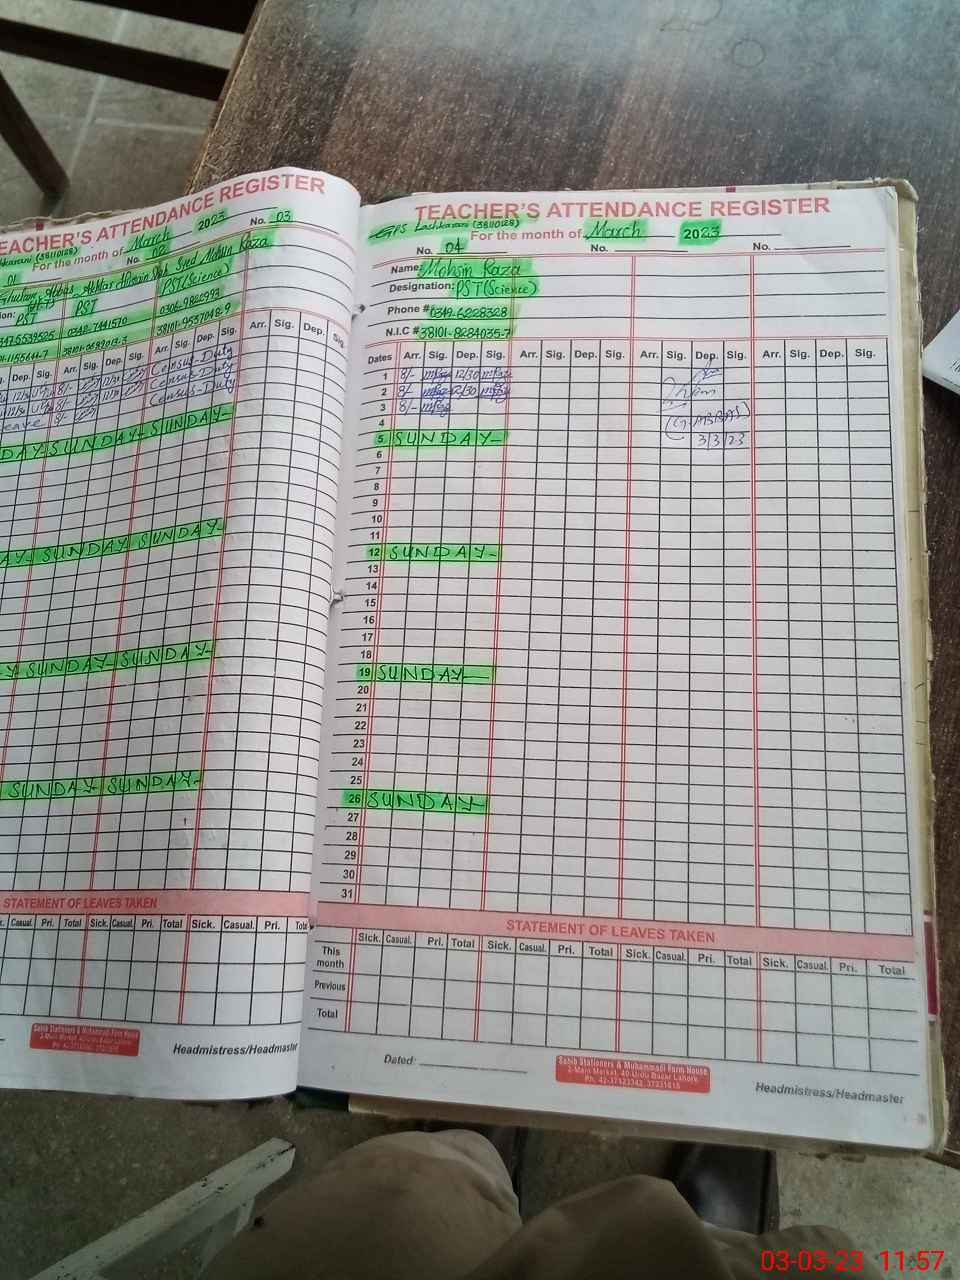 TEACHER'S ATTENDANCE REGISTER
For the month of March 2023 No. 03
01 No. 02
Ghulam Abbas Akhtar Hussain Shah Syed Mohsin Raza
PST PST PST(Science)
0342-7441570 0306-9822993
Arr. Sig. Dep. Sig.
Dep. Sig. Arr. Sig. Dep. Sig.
Census-Duty
Census-Duty
Census-Duty
Leave
DAY SUNDAY SUNDAY
AY SUNDAY SUNDAY
Y SUNDAY SUNDAY
SUNDAY SUNDAY
STATEMENT OF LEAVES TAKEN
Casual. Pri. Total Sick. Casual. Pri. Total Sick. Casual. Pri. Total
Sahib Stationers & Muhammadi Form House
Headmistress/Headmaster
TEACHER'S ATTENDANCE REGISTER
GPS Lashkarani (38110128)
For the month of March 2023
No. 04 No. No.
Name: Mohsin Raza
Designation: PST(Science)
Phone # 0349-6228328
N.I.C # 38101-8284035-7
Dates Arr. Sig. Dep. Sig. Arr. Sig. Dep. Sig. Arr. Sig. Dep. Sig. Arr. Sig. Dep. Sig.
1 8/- 12/30
2 8/- 12/30
3 8/-
(G.ABBAS)
4
3/3/23
5 SUNDAY
6
7
8
9
10
11
12 SUNDAY
13
14
15
16
17
18
19 SUNDAY
20
21
22
23
24
25
26 SUNDAY
27
28
29
30
31
STATEMENT OF LEAVES TAKEN
Sick. Casual. Pri. Total Sick. Casual. Pri. Total Sick. Casual. Pri. Total Sick. Casual. Pri. Total
This month
Previous
Total
Dated:
Sahib Stationers & Muhammadi Form House
2-Main Market, 40-Urdu Bazar Lahore.
Ph. 42-37123342, 37231615
Headmistress/Headmaster
03-03-23 11:57